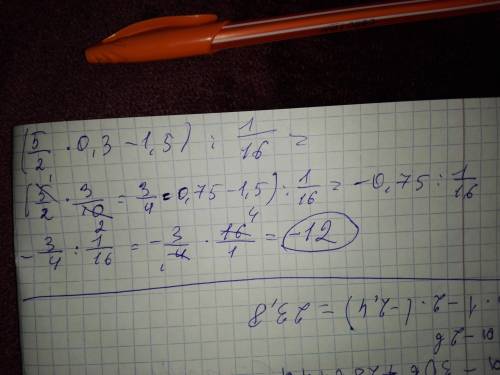 (5/2 · 0,3 − 1,5) : 1/16 =
(5/2 · 3/10 = 3/4 = 0,75 − 1,5) : 1/16 = −0,75 : 1/16
−3/4 : 1/16 = −3/4 · 16/1 = −12
· 1 − 2 · (−2,4) = 23,8